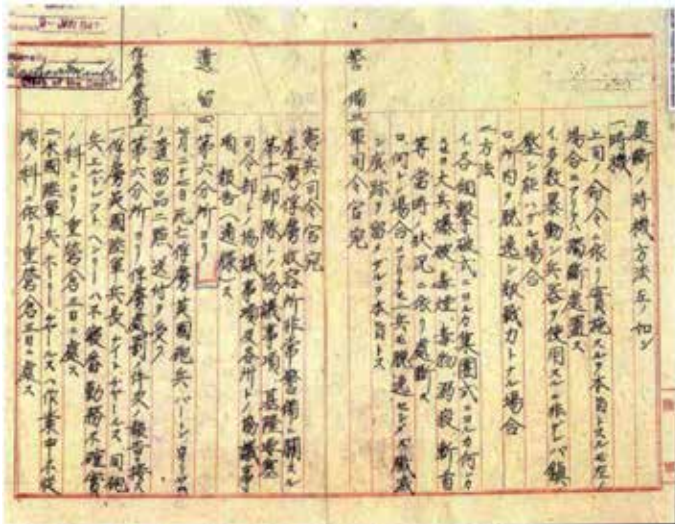 處断ノ時機方法左ノ如シ
一時機
上司ノ命令ニ依リ實施スルヲ本旨トスルモ左ノ
場合ニアリテハ獨断処置ス
イ、多数暴動シ兵器ヲ使用スルニ非ザレバ鎮
壓シ
ハザル場合
ロ、所内ヲ脱逸シ敵戦力トナル場合
二方法
イ、各個撃破式ニヨルカ集團式ニヨルカ何レカ
大兵爆破、毒煙、毒物、溺殺、斬首
等當時ノ状況ニ依リ處断ス
ロ、何レノ場合ニアリテモ一兵モ脱逸セシメズ殲滅
シ痕跡ヲ留メザルヲ本旨トス
警備
軍司令官宛
憲兵司令官宛
臺灣俘虜収容所非常警備ニ関スル
第十一部隊トノ協議事項、基隆要塞
司令部トノ協議事項及各所トノ協議事
項報告(通牒)ス
遺留品
第六分所ヨリ
七月二十七日死亡俘虜英國砲兵
ノ遺留品二點送付ヲ受ク
俘虜處罰
第六分所ヨリ俘虜處罰ノ件左ノ報告接ス
一俘虜英國陸軍兵長ナイト、チャールス、同砲
不寝番勤務不確實
ノ科ニヨリ重營倉三日ニ處ス
二米國陸軍兵
チャールスハ作業中不従
順ノ科ニ依リ重營倉三日ニ處ス